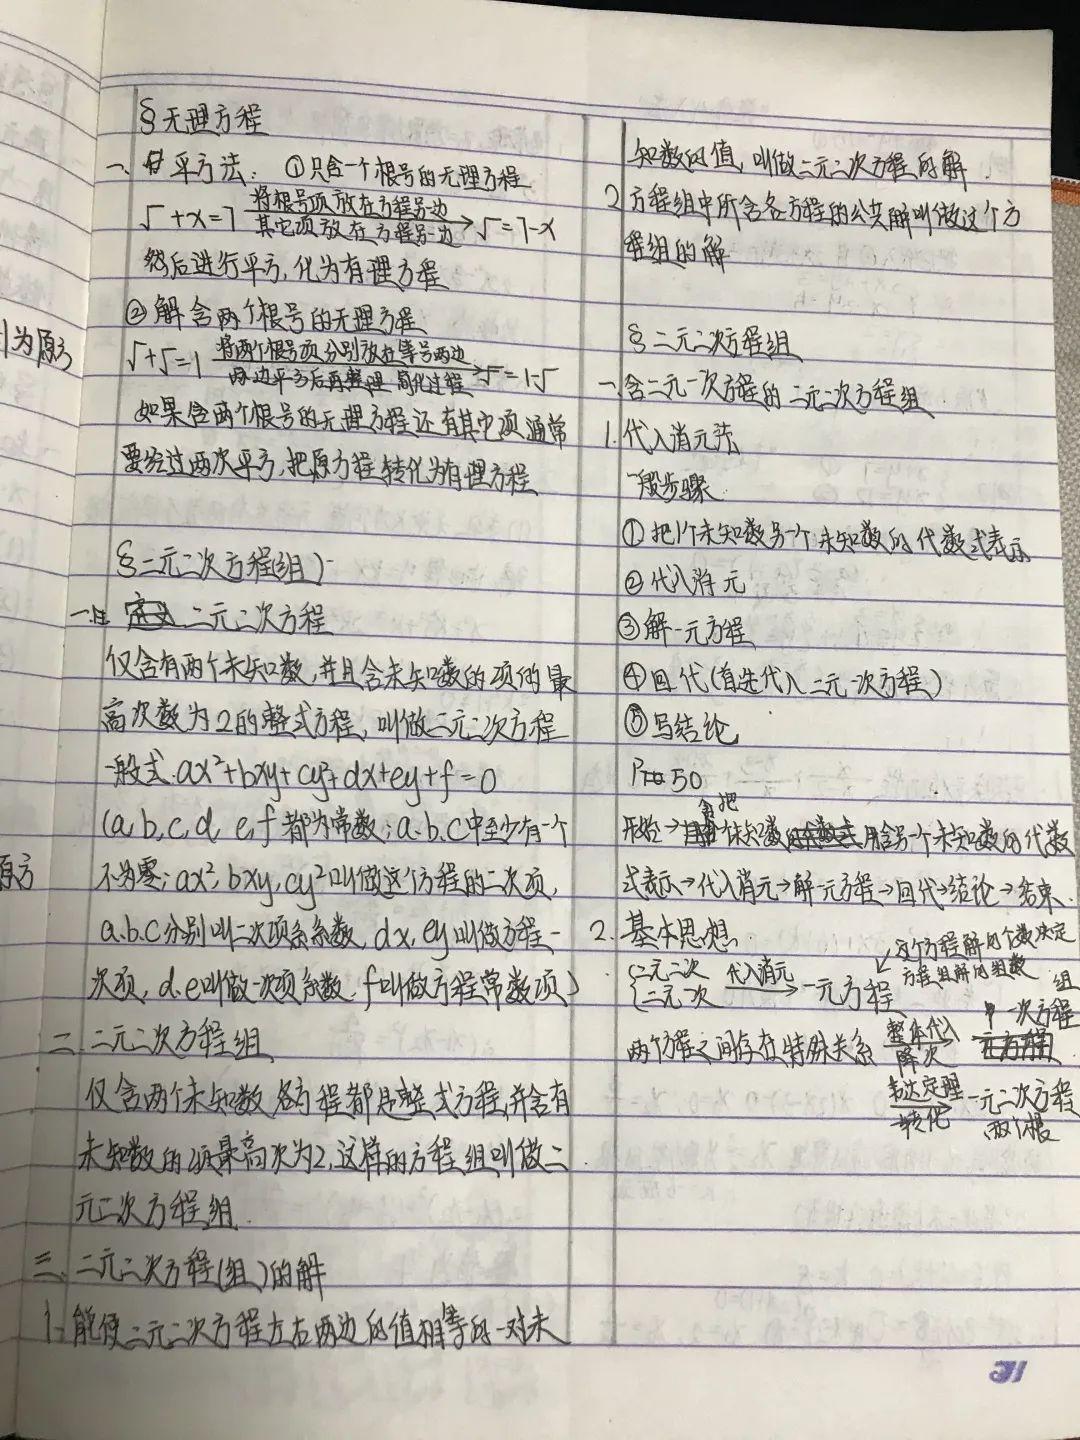 §无理方程
一、平方法：①只含一个根号的无理方程
√ +x=7 将根号项放在方程另一边 其它项放在方程另一边 → √=7-x
然后进行平方,化为有理方程
②解含两个根号的无理方程
√+√=1 将两个根号项分别放在等号两边 两边平方后再整理 简化过程 → √=1-√
如果含两个根号的无理方程还有其它项,通常
要经过两次平方,把原方程转化为有理方程
§二元二次方程(组)
一. 二元二次方程
仅含有两个未知数,并且含未知数的项的最
高次数为2的整式方程,叫做二元二次方程
一般式.ax²+bxy+cy²+dx+ey+f=0
(a,b,c,d,e,f都为常数;a.b.c中至少有一个
不为零;ax²,bxy,cy²叫做这个方程的二次项,
a.b.c分别叫二次项系系数,dx,ey叫做方程一
次项,d.e叫做一次项系数.f叫做方程常数项)
二、二元二次方程组
仅含两个未知数,各方程都是整式方程,并含有
未知数的项最高次为2,这样的方程组叫做二
元二次方程组.
三、二元二次方程(组)的解
1、能使二元二次方程左右两边的值相等的一对未
知数的值,叫做二元二次方程的解.
2 方程组中所含各方程的公共解叫做这个方
程组的解
§二元二次方程组
一、含二元一次方程的二元二次方程组
1.代入消元法
一般步骤.
①把1个未知数另一个未知数的代数式表示
②代入消元
③解一元方程
④回代(首选代入二元一次方程)
⑤写结论
P 50
把
开始→ 个未知数 用含另一个未知数的代数
式表示→代入消元→解一元方程→回代→结论→结束.
2. 基本思想
{二元二次 二元一次 代入消元→ 一元方程
↙这个方程解的个数决定
方程组解的组数
两个方程之间存在特殊关系 整体代入 降次 一次方程组
韦达定理 转化→ 一元二次方程
两个根
原方
31